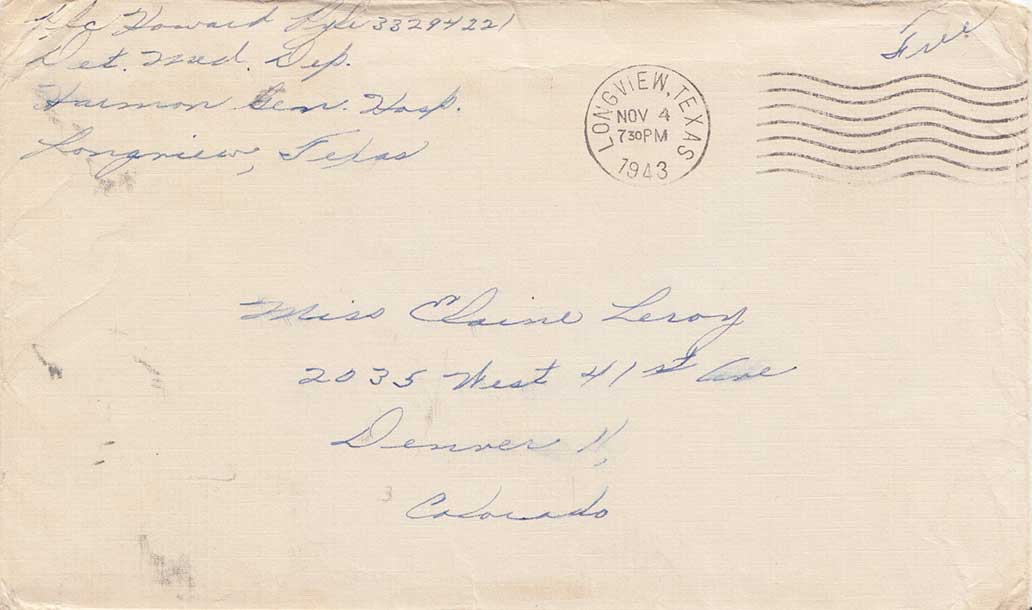 Pfc Howard Lyle 33294221
Det. Med. Dep.
Harmon Gen. Hosp.
Longview, Texas
Free
LONGVIEW, TEXAS
NOV 4
730PM
1943
Miss Elaine Leroy
2035 West 41st Ave
Denver 11,
Colorado